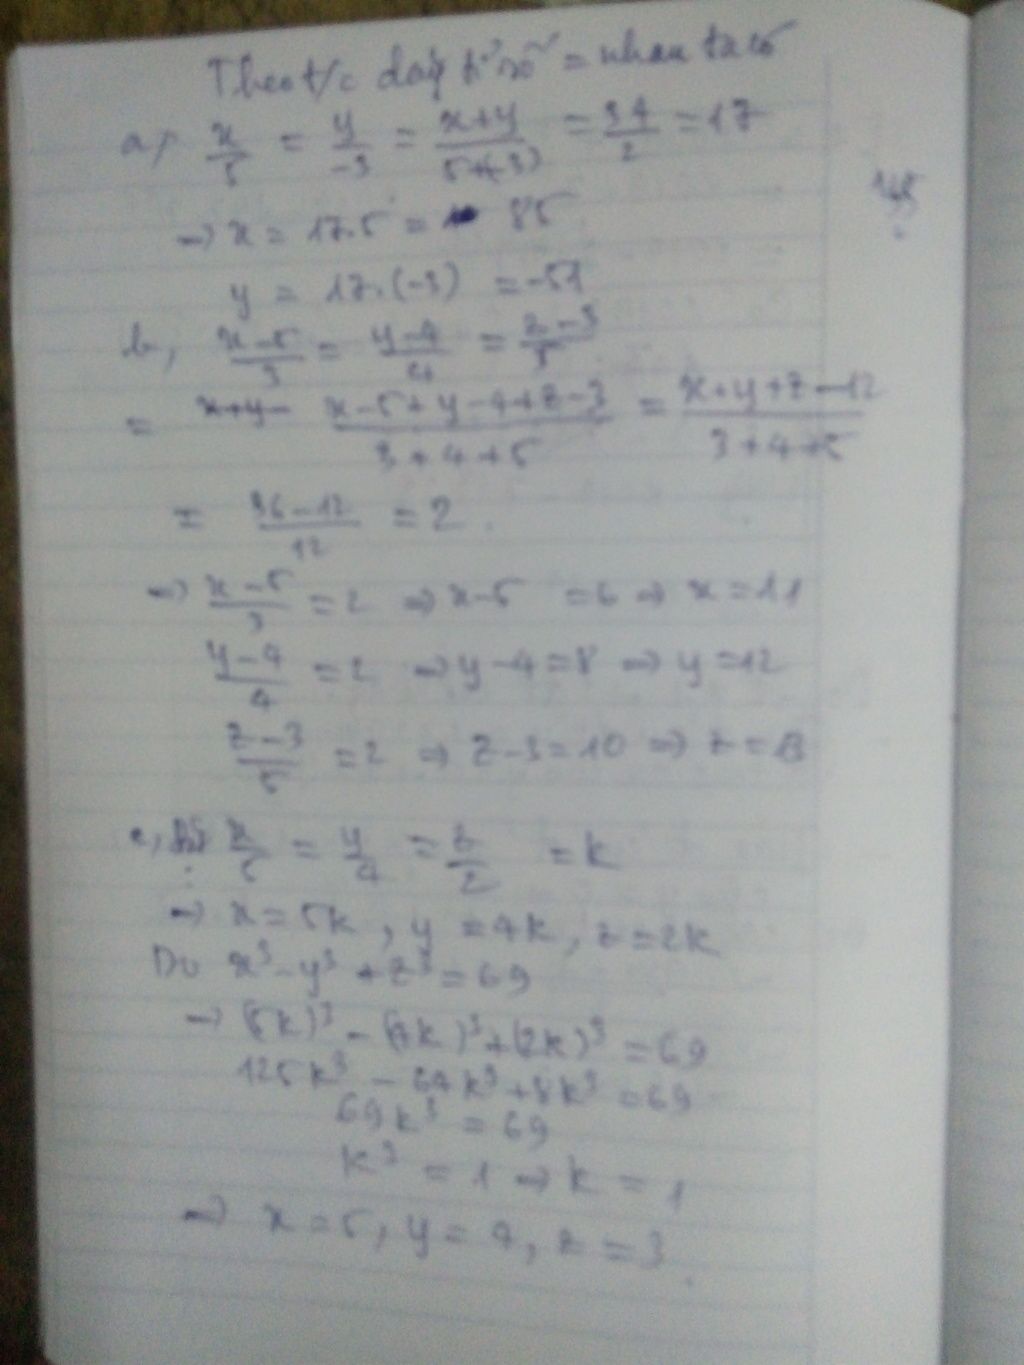 Theo t/c dãy tỉ số = nhau ta có
a, x/5 = y/-3 = x+y/5+(-3) = 34/2 = 17
→ x = 17.5 = 85
y = 17.(-3) = -51
b, x-5/3 = y-4/4 = z-3/5
= x+y- x-5+y-4+z-3/3+4+5 = x+y+z-12/3+4+5
= 36-12/12 = 2.
→ x-5/3 = 2 ⇒ x-5 = 6 ⇒ x = 11
y-4/4 = 2 ⇒ y-4 = 8 ⇒ y = 12
z-3/5 = 2 ⇒ z-3 = 10 ⇒ z = 13
c, x/5 = y/4 = z/2 = k
→ x = 5k, y = 4k, z = 2k
Do x³ - y³ + z³ = 69
→ (5k)³ - (4k)³ + (2k)³ = 69
125k³ - 64k³ + 8k³ = 69
69k³ = 69
k³ = 1 ⇒ k = 1
⇒ x = 5, y = 4, z = 3.